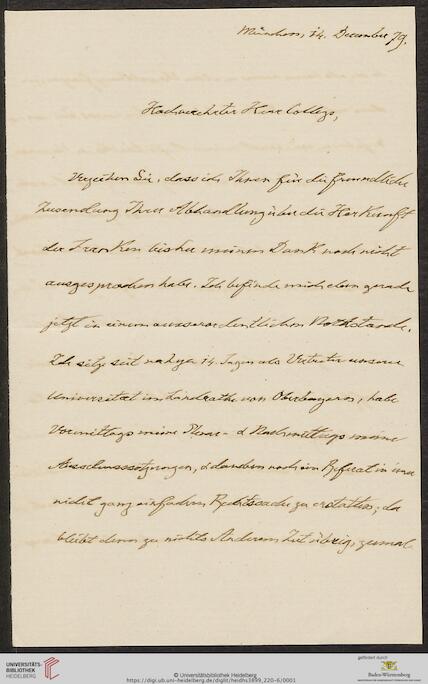 München, 14. December 79.
Hochverehrter Herr College,
Verzeihen Sie, dass ich Ihnen für die freundliche
Zusendung Ihrer Abhandlung über die Herkunft
der Franken bisher meinen Dank noch nicht
ausgesprochen habe. Ich befinde mich eben gerade
jetzt in einem ausserordentlichen Nothstande.
Ich sitze seit nahezu 14 Tagen als Vertreter unserer
Universität im Landrathe von Oberbayern, habe
Vormittags meine Plenar- & Nachmittags meine
Ausschusssitzungen, & daneben noch ein Referat in einer
nicht ganz einfachen Rechtssache zu erstatten; da
bleibt denn zu nichts Anderem Zeit übrig, zumal
UNIVERSITÄTS-
BIBLIOTHEK
HEIDELBERG
© Universitätsbibliothek Heidelberg
https://digi.ub.uni-heidelberg.de/diglit/heidhs3899_220-6/0001
gefördert durch
Baden-Württemberg